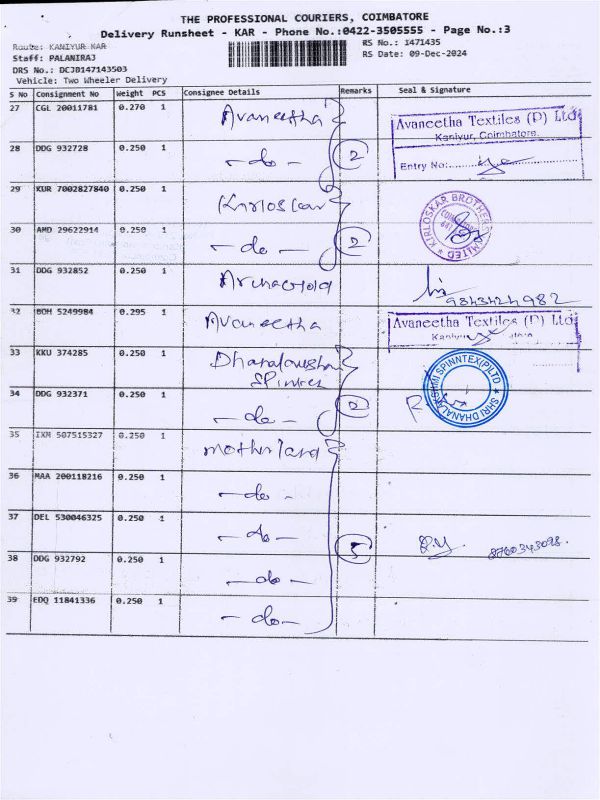 THE PROFESSIONAL COURIERS, COIMBATORE
Delivery Runsheet - KAR - Phone No.:0422-3505555 - Page No.:3
Route: KANIYUR KAR
RS No.: 1471435
Staff: PALANIRAJ
RS Date: 09-Dec-2024
DRS No.: DCJ0147143503
Vehicle: Two Wheeler Delivery
S No Consignment No Weight PCS Consignee Details Remarks Seal & Signature
27 CGL 20011781 0.270 1 Avaneetha
Avaneetha Textiles (P) Ltd
Kaniyur, Coimbatore.
28 DDG 932728 0.250 1 - do - 2
Entry No:
29 KUR 7002827840 0.250 1 Kirloskar
KIRLOSKAR BROTHERS LIMITED
30 AMD 29622914 0.250 1 - do - 2
31 DDG 932852 0.250 1
9843424982
32 BOM 5249984 0.295 1 Avaneetha
Avaneetha Textiles (P) Ltd
33 KKU 374285 0.250 1 Dhanalakshmi
Spintex
SHRI DHANALAKSHMI SPINNTEX(P)LTD
34 DDG 932371 0.250 1 - do - 2
35 IXM 507515327 0.250 1 motherland
36 MAA 200118216 0.250 1 - do -
37 DEL 530046325 0.250 1 - do - 5
8760343098.
38 DDG 932792 0.250 1 - do -
39 EDQ 11841336 0.250 1 - do -